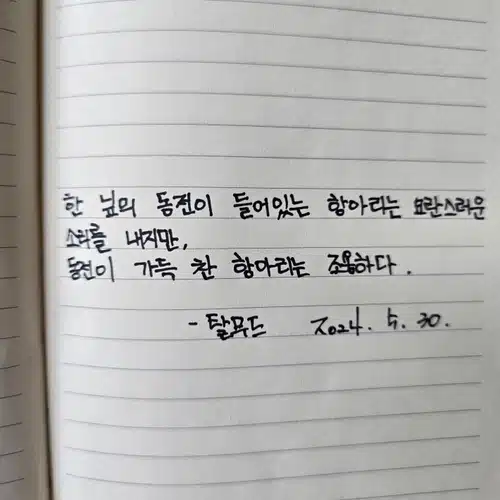 한 닢의 동전이 들어있는 항아리는 요란스러운
소리를 내지만,
동전이 가득 찬 항아리는 조용하다.
- 탈무드 2024. 5. 30.